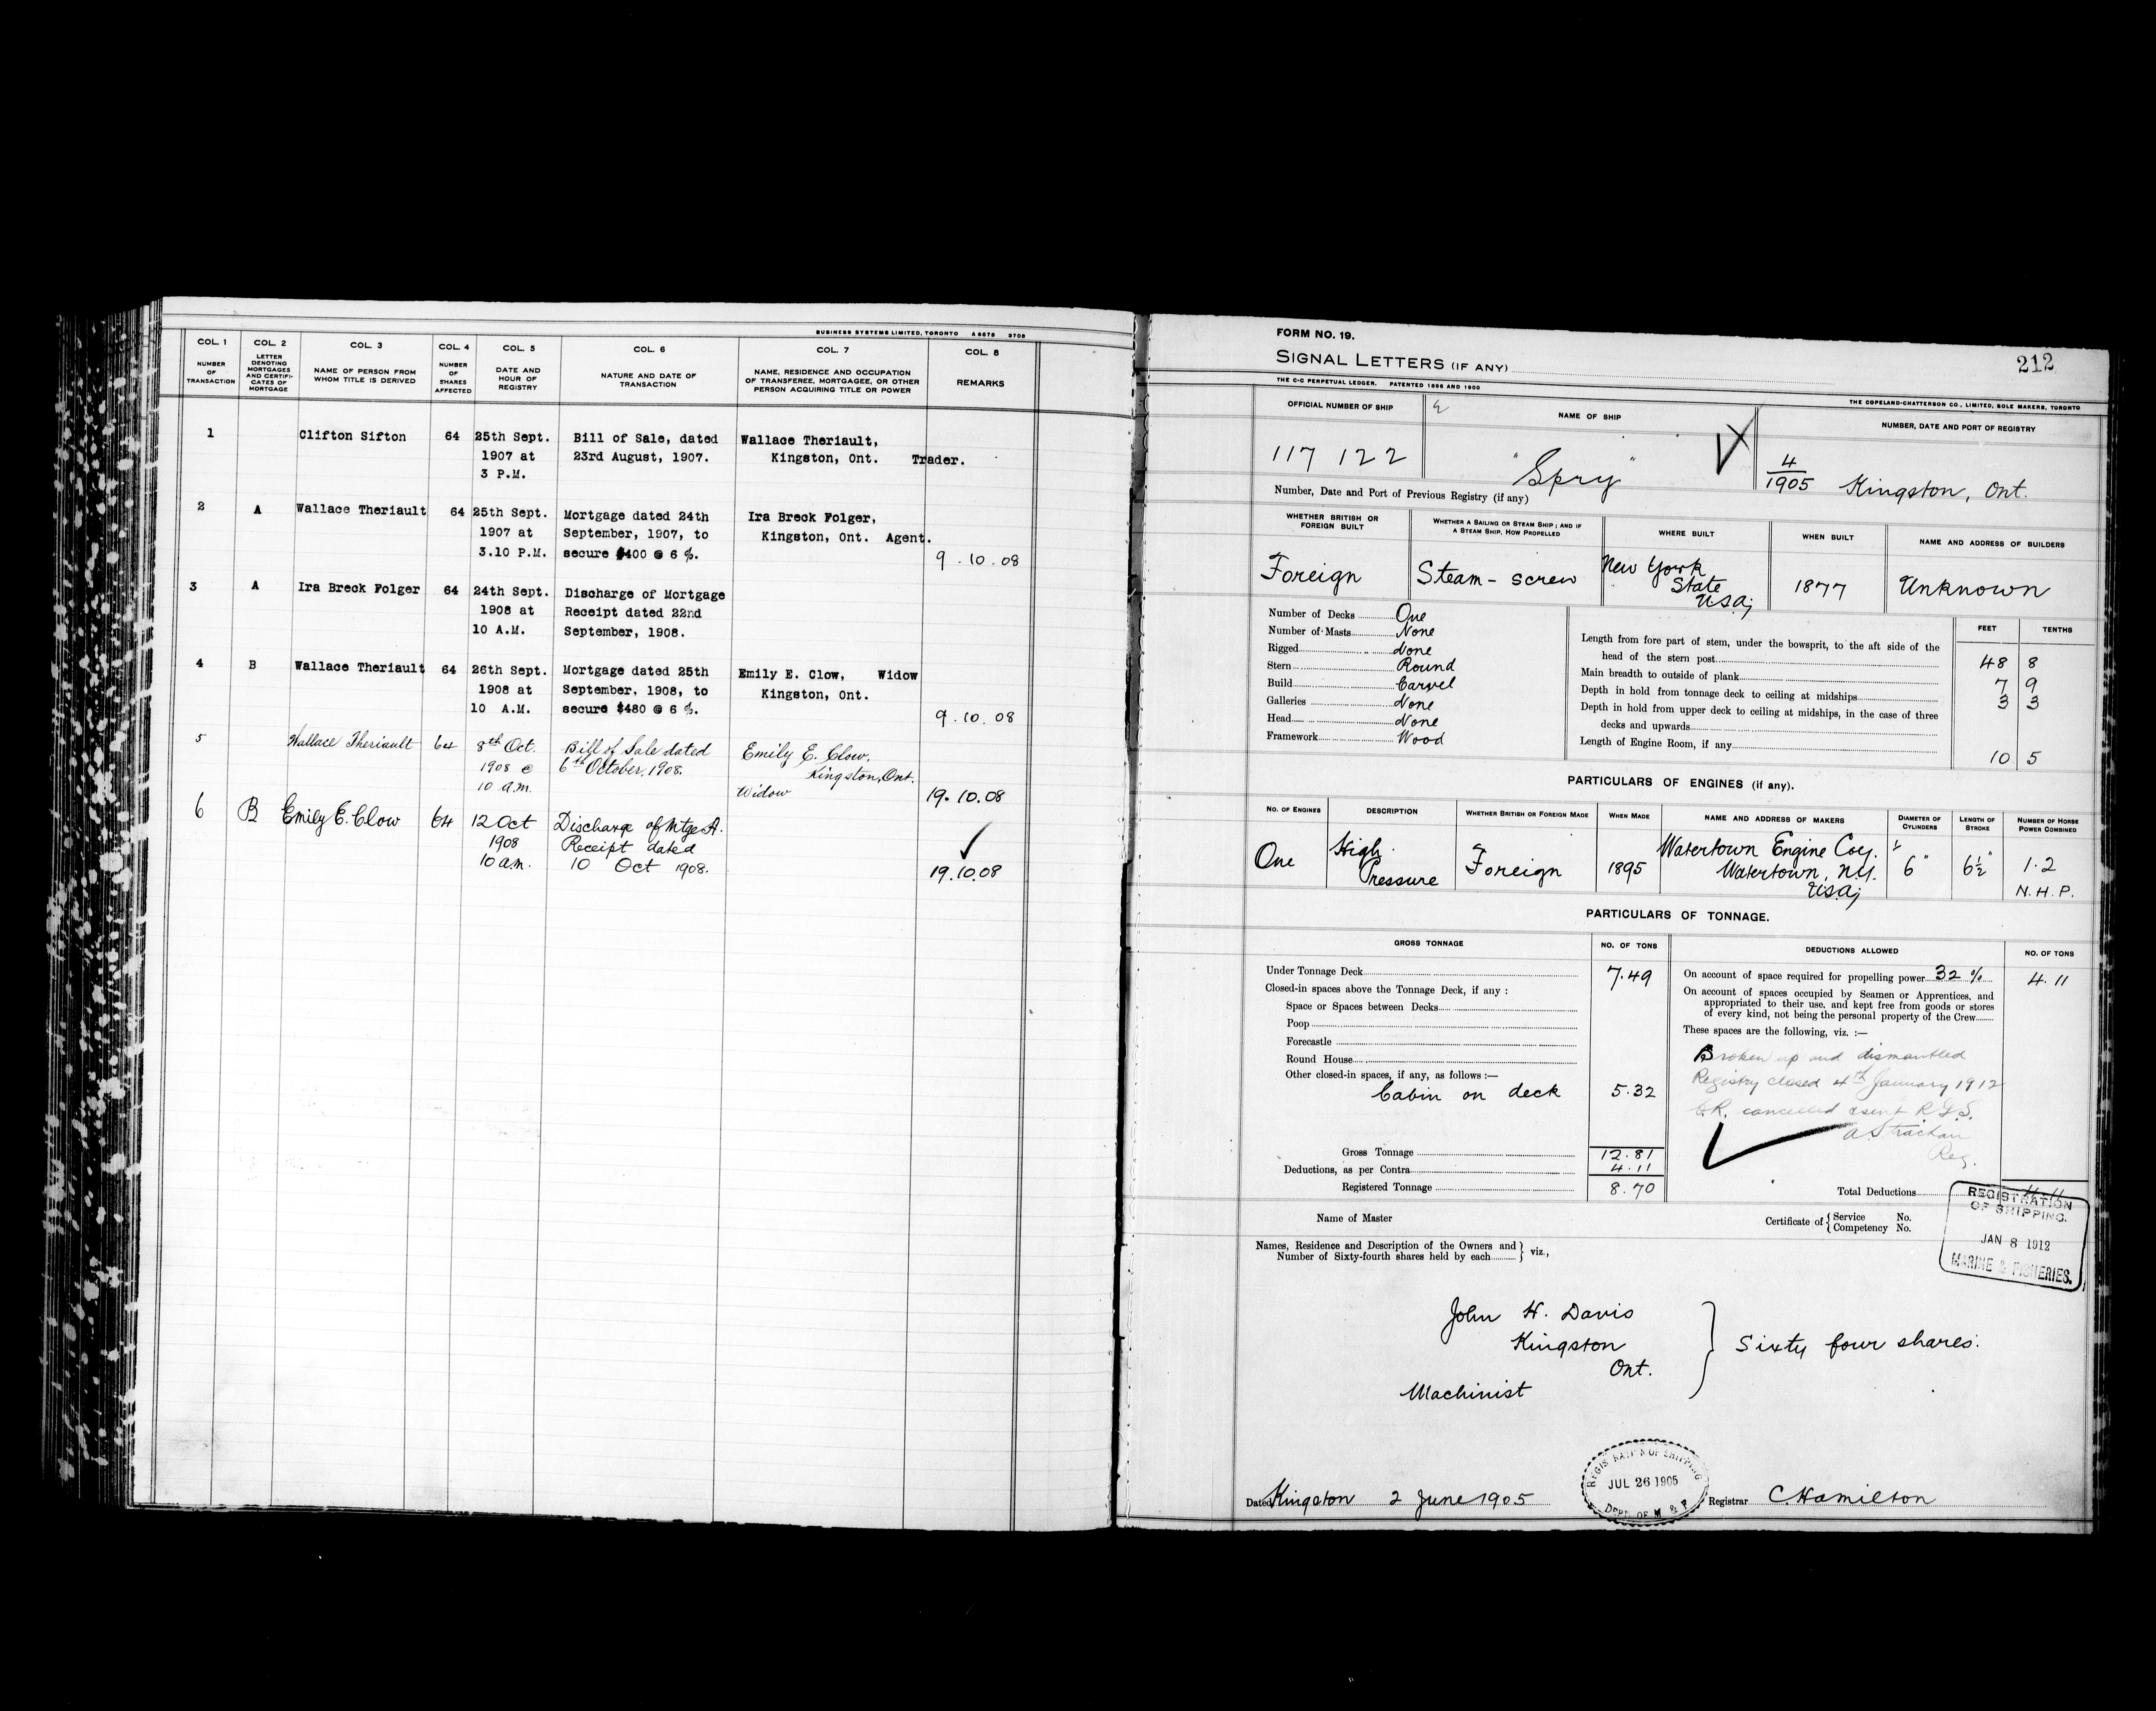 BUSINESS SYSTEMS LIMITED, TORONTO A 6675 3708
COL. 1 NUMBER OF TRANSACTION
COL. 2 LETTER DENOTING MORTGAGES AND CERTIFI- CATES OF MORTGAGE
COL. 3 NAME OF PERSON FROM WHOM TITLE IS DERIVED
COL. 4 NUMBER OF SHARES AFFECTED
COL. 5 DATE AND HOUR OF REGISTRY
COL. 6 NATURE AND DATE OF TRANSACTION
COL. 7 NAME, RESIDENCE AND OCCUPATION OF TRANSFEREE, MORTGAGEE, OR OTHER PERSON ACQUIRING TITLE OR POWER
COL. 8 REMARKS
1 Clifton Sifton 64 25th Sept. Bill of Sale, dated Wallace Theriault,
1907 at 23rd August, 1907. Kingston, Ont. Trader.
3 P.M.
2 A Wallace Theriault 64 25th Sept. Mortgage dated 24th Ira Breck Folger,
1907 at September, 1907, to Kingston, Ont. Agent.
3.10 P.M. secure $400 @ 6 %. 9.10.08
3 A Ira Breck Folger 64 24th Sept. Discharge of Mortgage
1908 at Receipt dated 22nd
10 A.M. September, 1908.
4 B Wallace Theriault 64 26th Sept. Mortgage dated 25th Emily E. Clow, Widow
1908 at September, 1908, to Kingston, Ont.
10 A.M. secure $480 @ 6 %. 9.10.08
5 Wallace Theriault 64 8th Oct. Bill of Sale dated Emily E. Clow,
1908 @ 6th October, 1908. Kingston, Ont.
10 a.m. Widow 19.10.08
6 B Emily E. Clow 64 12 Oct Discharge of Mtge A.
1908 Receipt dated
10 a.m. 10 Oct 1908. 19.10.08
FORM NO. 19.
SIGNAL LETTERS (IF ANY)
212
THE C-C PERPETUAL LEDGER. PATENTED 1896 AND 1900
THE COPELAND-CHATTERSON CO., LIMITED, SOLE MAKERS, TORONTO
OFFICIAL NUMBER OF SHIP NAME OF SHIP NUMBER, DATE AND PORT OF REGISTRY
117 122 "Spry" 4/1905 Kingston, Ont.
Number, Date and Port of Previous Registry (if any)
WHETHER BRITISH OR FOREIGN BUILT
WHETHER A SAILING OR STEAM SHIP; AND IF A STEAM SHIP, HOW PROPELLED
WHERE BUILT
WHEN BUILT
NAME AND ADDRESS OF BUILDERS
Foreign Steam-screw New York State U.S.A. 1877 Unknown
Number of Decks One
Number of Masts None
Rigged None
Stern Round
Build Carvel
Galleries None
Head None
Framework Wood
FEET TENTHS
Length from fore part of stem, under the bowsprit, to the aft side of the
head of the stern post 48 8
Main breadth to outside of plank 7 9
Depth in hold from tonnage deck to ceiling at midships 3 3
Depth in hold from upper deck to ceiling at midships, in the case of three
decks and upwards
Length of Engine Room, if any 10 5
PARTICULARS OF ENGINES (if any).
NO. OF ENGINES DESCRIPTION WHETHER BRITISH OR FOREIGN MADE WHEN MADE NAME AND ADDRESS OF MAKERS DIAMETER OF CYLINDERS LENGTH OF STROKE NUMBER OF HORSE POWER COMBINED
One High Pressure Foreign 1895 Watertown Engine Coy. Watertown, N.Y. U.S.A. 6" 6½" 1.2 N.H.P.
PARTICULARS OF TONNAGE.
GROSS TONNAGE NO. OF TONS DEDUCTIONS ALLOWED NO. OF TONS
Under Tonnage Deck 7.49
Closed-in spaces above the Tonnage Deck, if any :
Space or Spaces between Decks
Poop
Forecastle
Round House
Other closed-in spaces, if any, as follows :—
Cabin on deck 5.32
Gross Tonnage 12.81
Deductions, as per Contra 4.11
Registered Tonnage 8.70
On account of space required for propelling power 32 % 4.11
On account of spaces occupied by Seamen or Apprentices, and
appropriated to their use, and kept free from goods or stores
of every kind, not being the personal property of the Crew
These spaces are the following, viz. :—
Broken up and dismantled
Registry closed 4th January 1912
C.R. cancelled & sent R.G.S.
A Strachan
Reg.
Total Deductions 4.11
REGISTRATION
OF SHIPPING.
JAN 8 1912
MARINE & FISHERIES.
Name of Master
Certificate of { Service No.
Competency No.
Names, Residence and Description of the Owners and
Number of Sixty-fourth shares held by each } viz.,
John H. Davis
Kingston
Ont.
Machinist
} Sixty four shares.
Dated Kingston 2 June 1905
REGISTRATION OF SHIPPING
JUL 26 1905
DEPT. OF M & F
Registrar C Hamilton